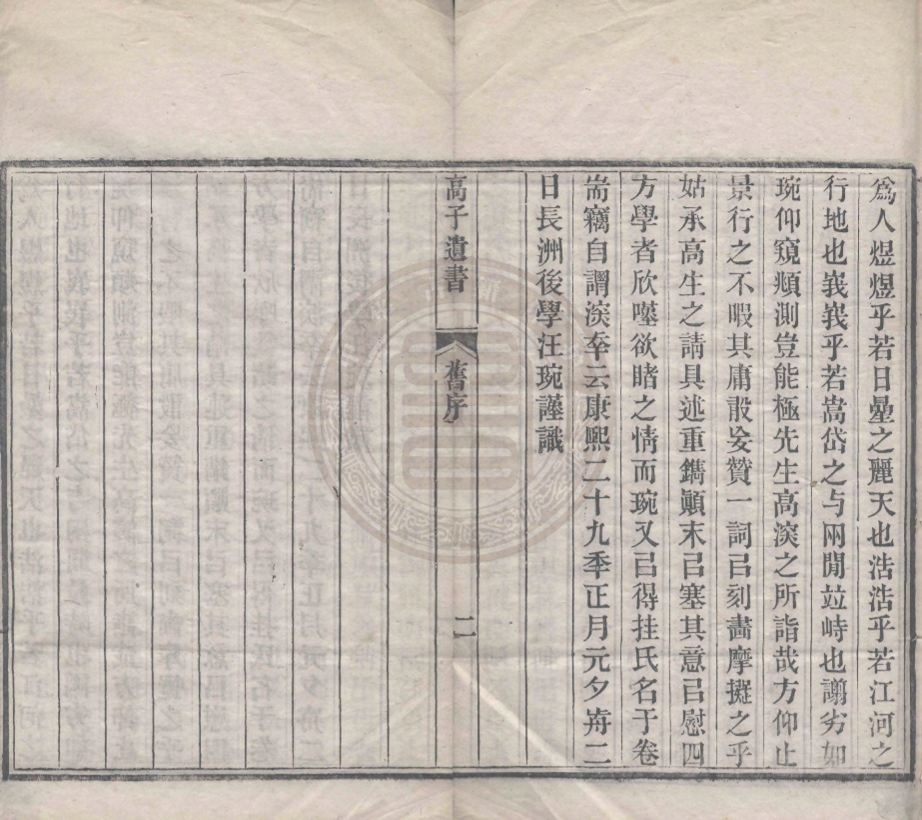 爲人煜煜乎若日曐之麗天也浩浩乎若江河之
行地也峩峩乎若嵩岱之与兩閒竝峙也譾劣如
琬仰窺頫測豈能極先生高湥之所詣哉方仰止
景行之不暇其庸敢妄贊一詞㠯刻畫摩擬之乎
姑承高生之請具述重鐫顚末㠯塞其意㠯慰四
方學者欣㘁欲睹之情而琬又㠯得挂氏名于卷
耑竊自謂湥幸云康熙二十九秊正月元夕歬二
日長洲後學汪琬謹識
高子遺書
舊序
二